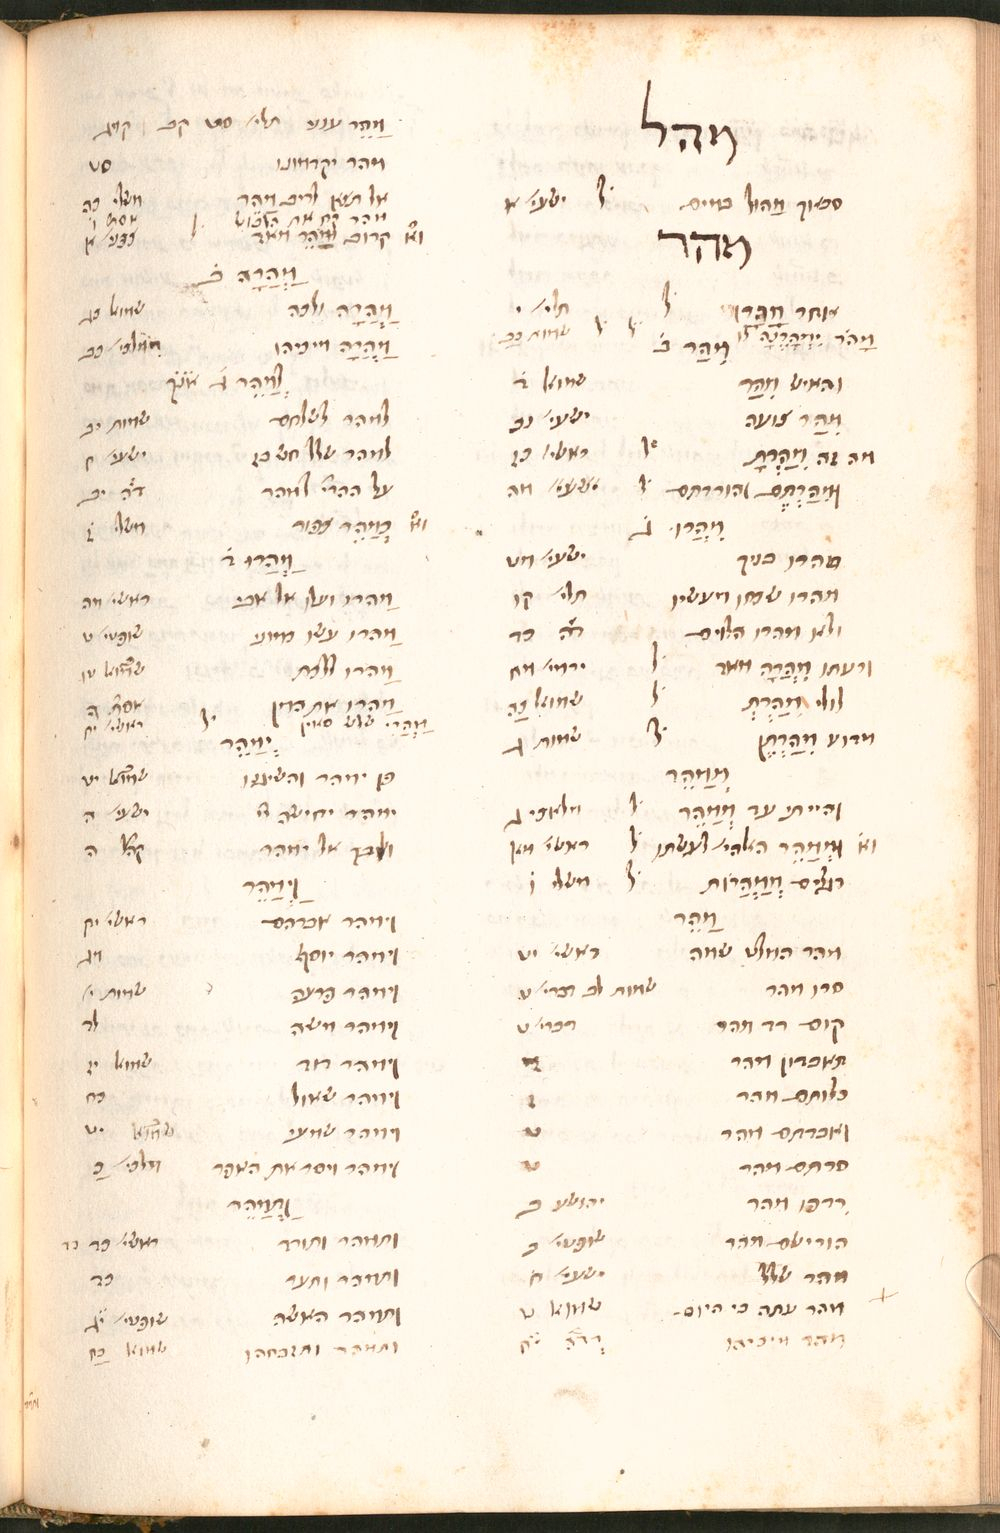 מהל
סבאך מהול במים ל ישעי׳ א
מהר
אחר מהרו ל תלי׳ י
מהר ימהרנה ל ל שמות כב
מהר ב
והאיש מהר שמוא׳ ב
מהר צועה ישעי׳ נב
מה זה מהרת ל ראשי׳ כז
ומהרתם והורדתם ל ראשי׳ מה
מהרו ג
מהרו בניך ישעי׳ מט
מהרו שכחו מעשיו תלי׳ קו
ולא מהרו הלוים כד
ורעתו מהרה מאד ל ירמי׳ מח
לולי מהרת ל שמוא׳ כה
מדוע מהרתן ל שמות ב
ממהר
והייתי עד ממהר ל מלאכי ג
וא׳ וממהר האלהי׳ לעשתו ל ראשי׳ מא
רגלים ממהרות ל משלי ו
מהר
מהר המלט שמה ראשי׳ יט
סרו מהר שמות לב דברי׳ ט
קום רד מהר דברי׳ ט
תאבדון מהר
כלותם מהר ז
ואבדתם מהר
סרתם מהר ט
רדפו מהר יהושע ב
הורישם מהר שופטי׳ ב
מהר שלל ישעי׳ ח
מהר עתה כי היום שמוא׳ ט
מהר מיכיהו
מהר ענני תלי׳ סט קב קמג
מהר יקדמונו עט
אל תצא לריב מהר משלי כה
מהר קח את הלבוש ל אסתר ו
וא׳ קרוב ומהר מאד צפני׳ א
מהרה ב
מהרה ולכה שמוא׳ כג
מהרה מיכיהו מלכי׳ כב
למהר ג
למהר לשלחם שמות יב
למהר שלל חש בז ישעי׳ ח
על ההרי׳ למהר יב
וא׳ כמהר צפור משלי ז
מהרו ב
מהרו ועלו אל אבי ראשי׳ מה
מהרו עשו כמוני שופטי׳ ט
מהרו ללכת
מהרו את המן אסתר ה
מהרי שלש סאים ל ראשי׳ יח
ימהר
פן ימהר והשיגנו
ימהר יחישה ישעי׳ ה
ולבך אל ימהר קהל׳ ה
וימהר
וימהר אברהם ראשי׳ יח
וימהר יוסף מג
וימהר פרעה שמות י
וימהר משה לד
וימהר דוד שמוא׳ יז
וימהר שאול כח
וימהר שמעי יט
וימהר ויסר את האפר מלכי׳ כ
ותמהר
ותמהר ותורד ראשי׳ כד
ותמהר ותער כד
ותמהר האשה שופטי׳ יג
ותמהר ותזבחהו שמוא׳ כח